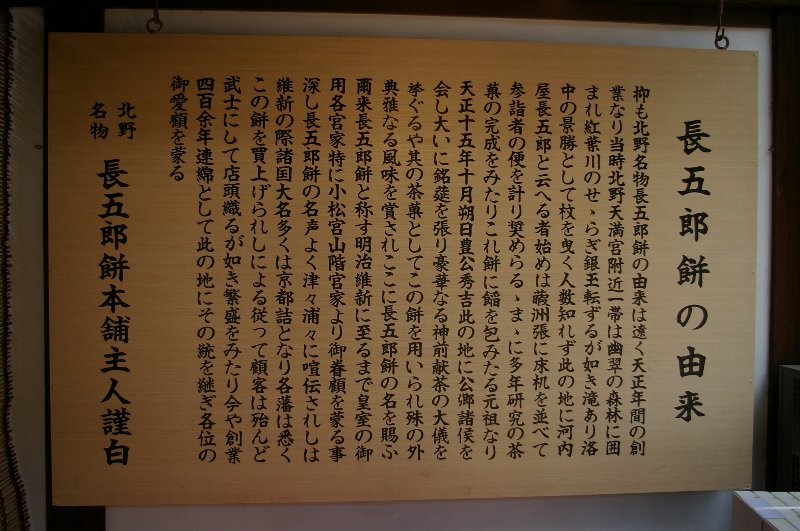 長五郎餅の由来
抑も北野名物長五郎餅の由来は遠く天正年間の創
業なり当時北野天満宮附近一帯は幽翠の森林に囲
まれ紅葉川のせゝらぎ銀玉転ずるが如き滝あり洛
中の景勝として杖を曳く人数知れず此の地に河内
屋長五郎と云へる者始めは葭洲張に床机を並べて
参詣者の便を計り奨めらるゝまゝに多年研究の茶
菓の完成をみたりこれ餅に餡を包みたる元祖なり
天正十五年十月朔日豊公秀吉此の地に公郷諸侯を
会し大いに銘莚を張り豪華なる神前献茶の大儀を
挙ぐるや其の茶菓としてこの餅を用いられ殊の外
典雅なる風味を賞されここに長五郎餅の名を賜ふ
爾来長五郎餅と称す明治維新に至るまで皇室の御
用各宮家特に小松宮山階宮家より御眷顧を蒙る事
深し長五郎餅の名声よく津々浦々に喧伝されしは
維新の際諸国大名多くは京都詰となり各藩は悉く
この餅を買上げられしによる従って顧客は殆んど
武士にして店頭織るが如き繁盛をみたり今や創業
四百余年連綿として此の地にその統を継ぎ各位の
御愛顧を蒙る
北野
名物
長五郎餅本舗主人謹白